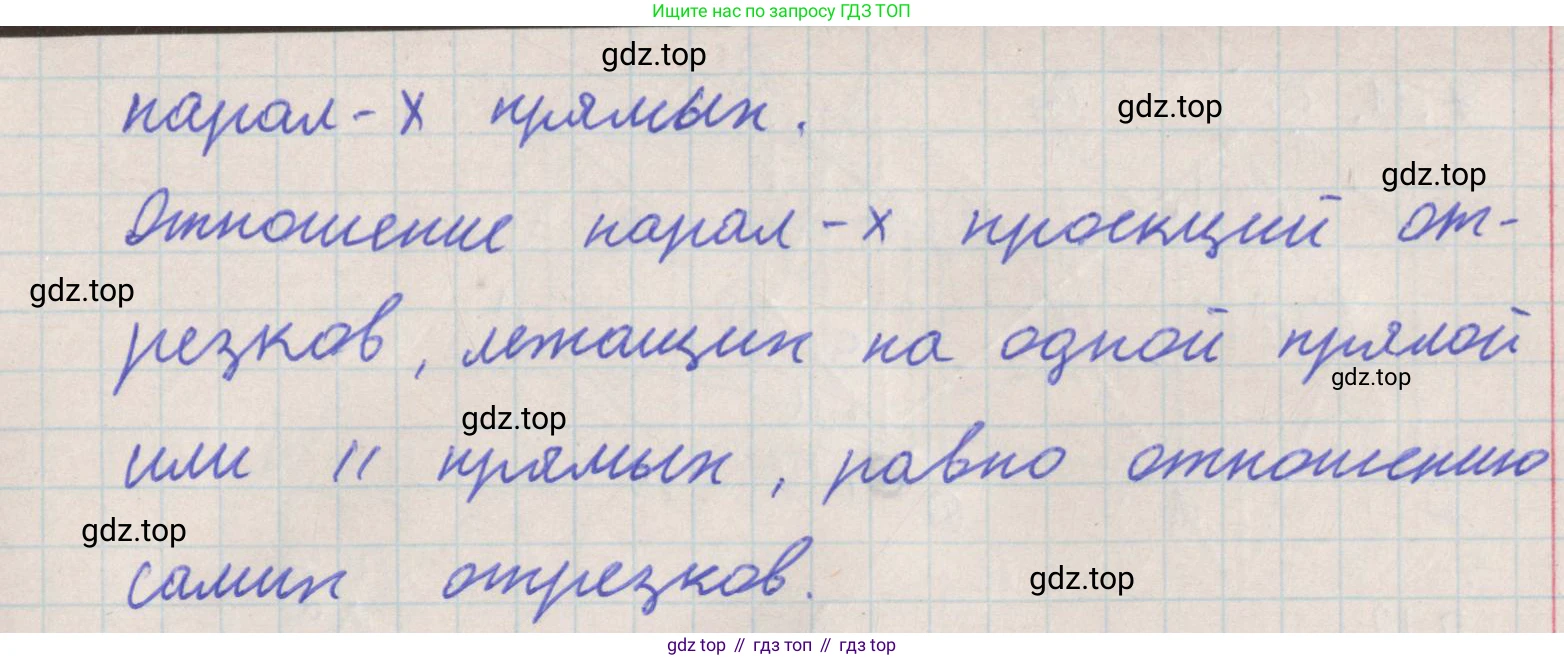 Ищите нас по запросу ГДЗ ТОП
gdz.top
парал-х прямых.
gdz.top
gdz.top
Отношение парал-х проекций от-
gdz.top
резков, лежащих на одной прямой
gdz.top
gdz.top
или || прямых, равно отношению
gdz.top
самих отрезков.
gdz.top
gdz top // гдз топ // gdz top